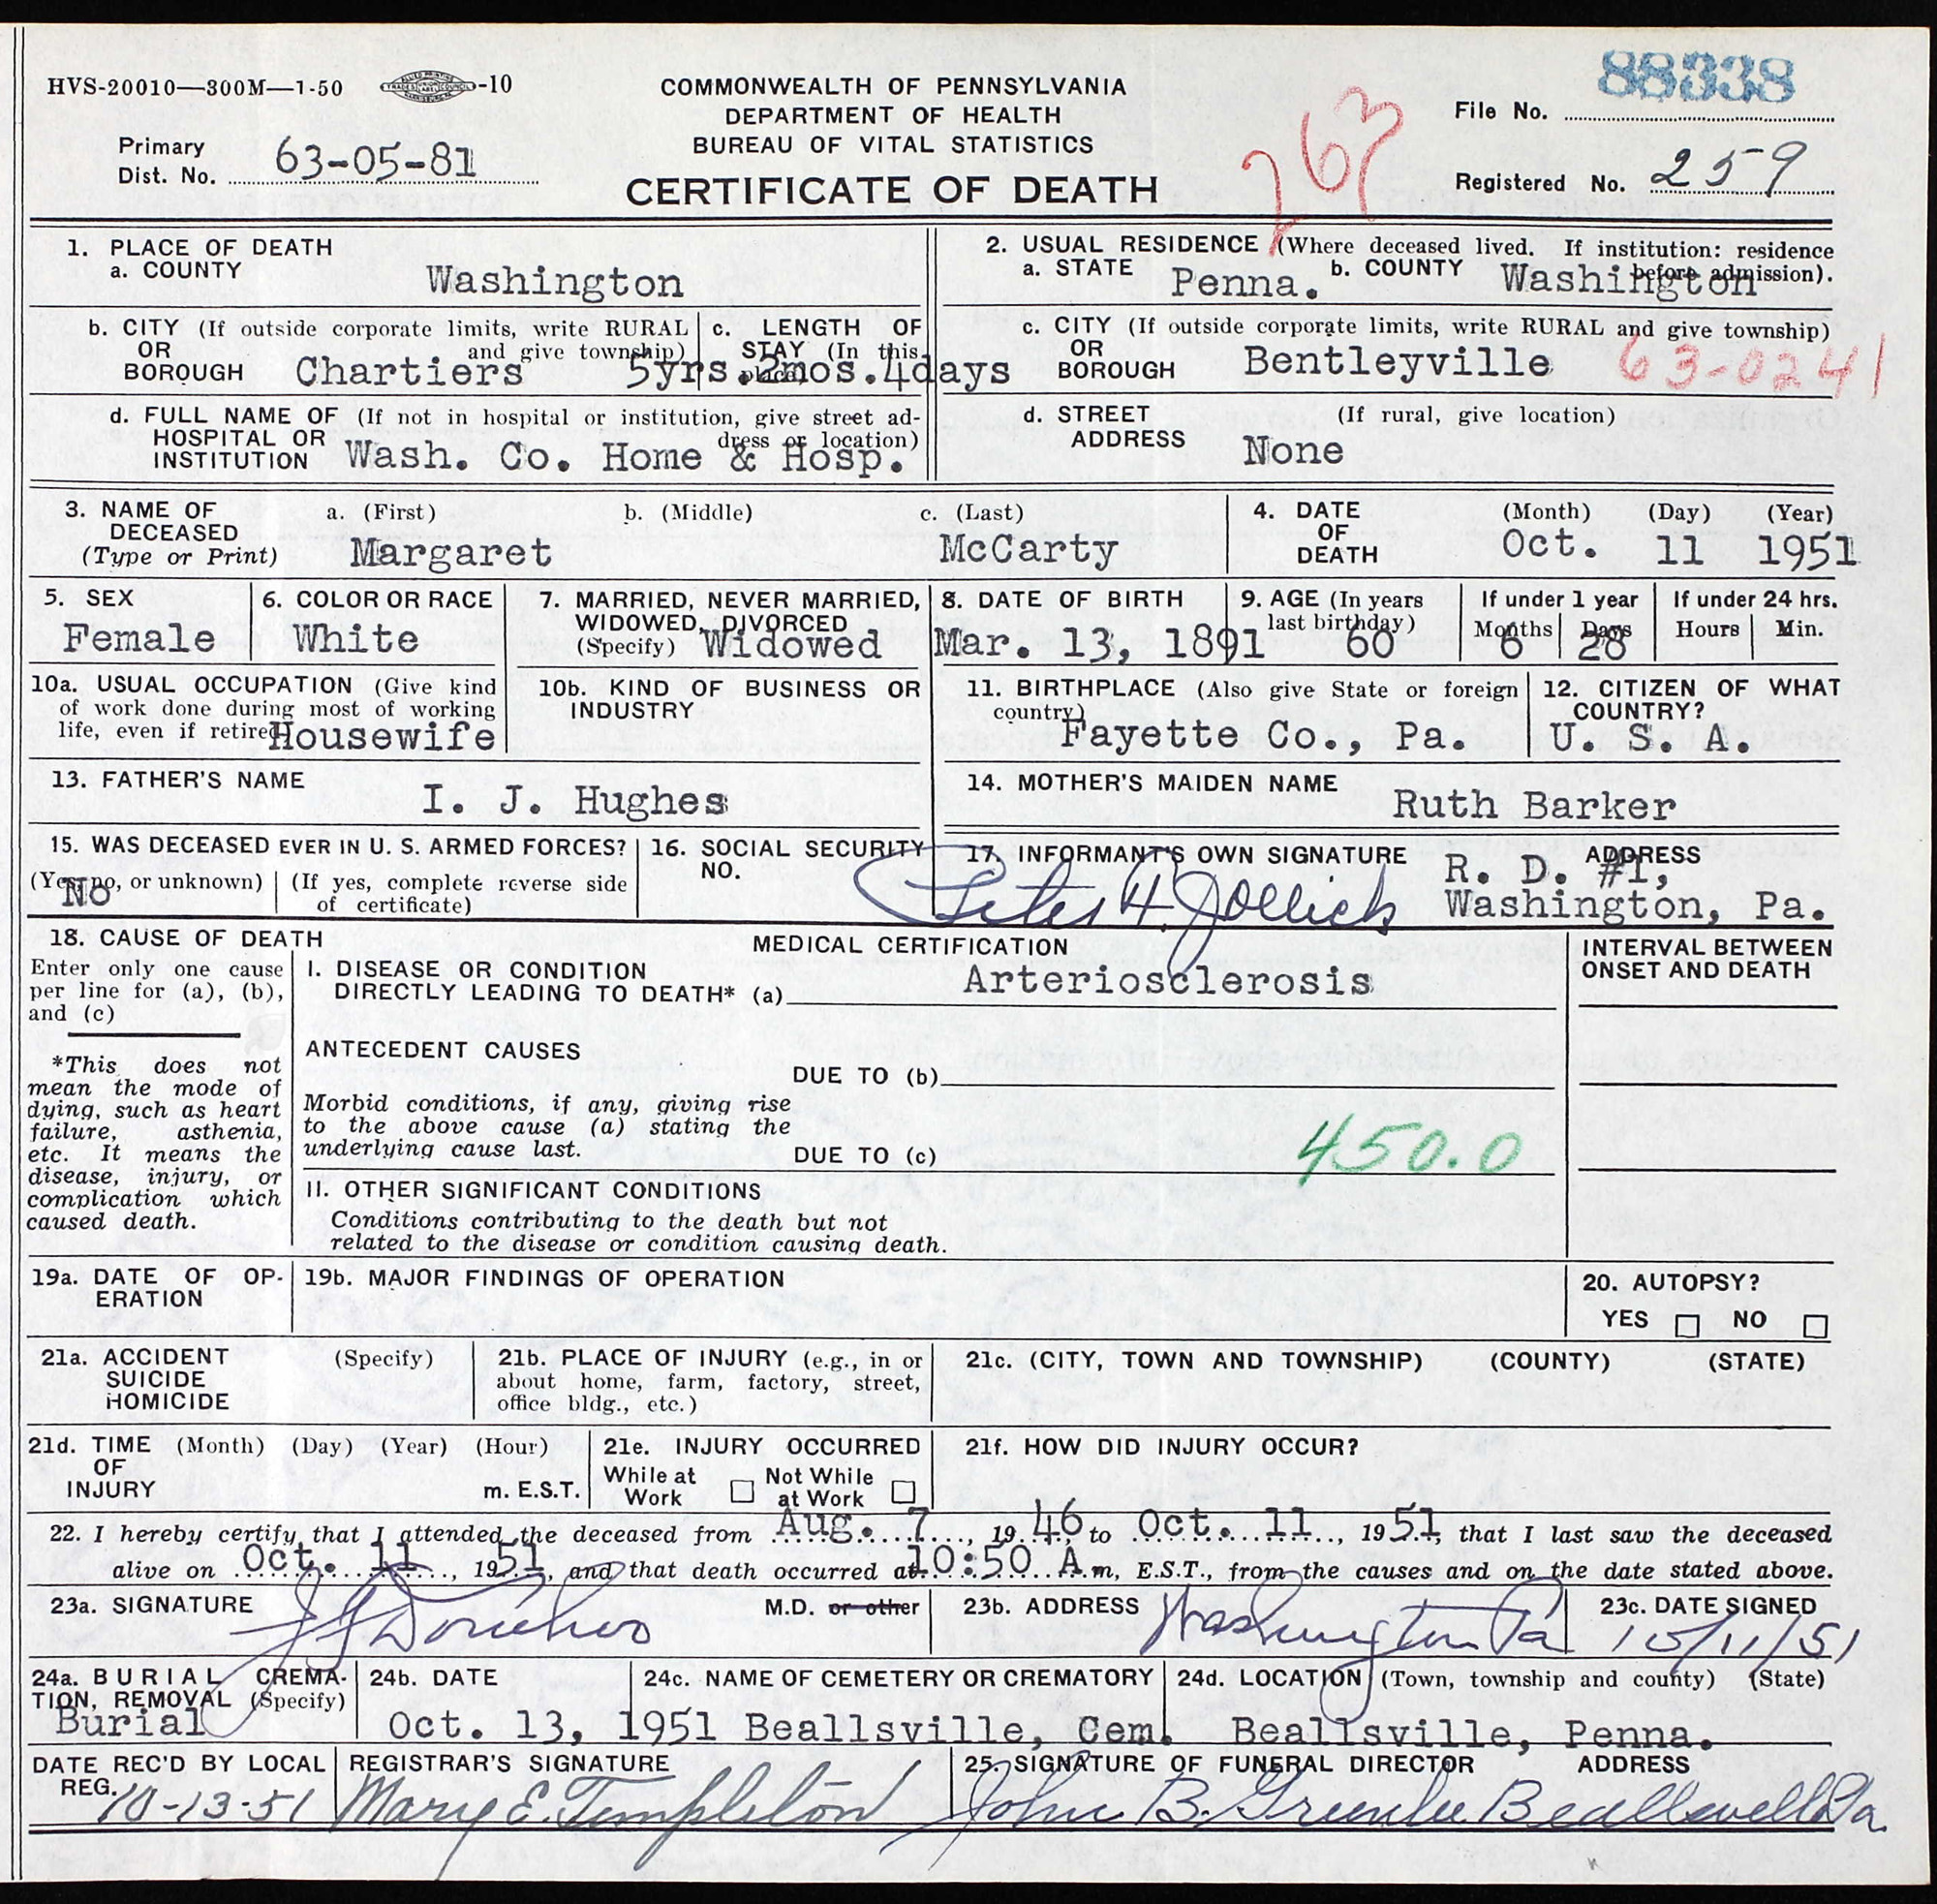 HVS-20010—300M—1-50 -10
COMMONWEALTH OF PENNSYLVANIA
DEPARTMENT OF HEALTH
BUREAU OF VITAL STATISTICS
CERTIFICATE OF DEATH
88338
File No.
Primary
Dist. No. 63-05-81
263
Registered No. 259
1. PLACE OF DEATH
a. COUNTY
Washington
2. USUAL RESIDENCE (Where deceased lived. If institution: residence
before admission).
a. STATE Penna. b. COUNTY Washington
b. CITY (If outside corporate limits, write RURAL
OR and give township)
BOROUGH Chartiers
c. LENGTH OF
STAY (In this
place)
5yrs.2mos.4days
c. CITY (If outside corporate limits, write RURAL and give township)
OR
BOROUGH Bentleyville 63-0241
d. FULL NAME OF (If not in hospital or institution, give street ad-
HOSPITAL OR dress or location)
INSTITUTION Wash. Co. Home & Hosp.
d. STREET (If rural, give location)
ADDRESS None
3. NAME OF
DECEASED
(Type or Print)
a. (First) b. (Middle) c. (Last)
Margaret McCarty
4. DATE
OF
DEATH
(Month) (Day) (Year)
Oct. 11 1951
5. SEX
Female
6. COLOR OR RACE
White
7. MARRIED, NEVER MARRIED,
WIDOWED, DIVORCED
(Specify) Widowed
8. DATE OF BIRTH
Mar. 13, 1891
9. AGE (In years
last birthday)
60
If under 1 year
Months Days
6 28
If under 24 hrs.
Hours Min.
10a. USUAL OCCUPATION (Give kind
of work done during most of working
life, even if retired
Housewife
10b. KIND OF BUSINESS OR
INDUSTRY
11. BIRTHPLACE (Also give State or foreign
country)
Fayette Co., Pa.
12. CITIZEN OF WHAT
COUNTRY?
U. S. A.
13. FATHER'S NAME
I. J. Hughes
14. MOTHER'S MAIDEN NAME
Ruth Barker
15. WAS DECEASED EVER IN U. S. ARMED FORCES?
(Yes, no, or unknown) (If yes, complete reverse side
of certificate)
No
16. SOCIAL SECURITY
NO.
17. INFORMANT'S OWN SIGNATURE ADDRESS
Peter H. Jollick R. D. #1,
Washington, Pa.
18. CAUSE OF DEATH
Enter only one cause
per line for (a), (b),
and (c)
*This does not
mean the mode of
dying, such as heart
failure, asthenia,
etc. It means the
disease, injury, or
complication which
caused death.
MEDICAL CERTIFICATION
I. DISEASE OR CONDITION
DIRECTLY LEADING TO DEATH* (a) Arteriosclerosis
ANTECEDENT CAUSES
DUE TO (b)
Morbid conditions, if any, giving rise
to the above cause (a) stating the
underlying cause last.
DUE TO (c) 450.0
INTERVAL BETWEEN
ONSET AND DEATH
II. OTHER SIGNIFICANT CONDITIONS
Conditions contributing to the death but not
related to the disease or condition causing death.
19a. DATE OF OP-
ERATION
19b. MAJOR FINDINGS OF OPERATION
20. AUTOPSY?
YES NO
21a. ACCIDENT (Specify)
SUICIDE
HOMICIDE
21b. PLACE OF INJURY (e.g., in or
about home, farm, factory, street,
office bldg., etc.)
21c. (CITY, TOWN AND TOWNSHIP) (COUNTY) (STATE)
21d. TIME (Month) (Day) (Year) (Hour)
OF
INJURY m. E.S.T.
21e. INJURY OCCURRED
While at Not While
Work at Work
21f. HOW DID INJURY OCCUR?
22. I hereby certify that I attended the deceased from Aug. 7, 1946 to Oct. 11, 1951, that I last saw the deceased
alive on Oct. 11, 1951, and that death occurred at 10:50 A m, E.S.T., from the causes and on the date stated above.
23a. SIGNATURE M.D. or other
23b. ADDRESS
Washington Pa
23c. DATE SIGNED
10/11/51
24a. BURIAL, CREMA-
TION, REMOVAL (Specify)
Burial
24b. DATE
Oct. 13, 1951
24c. NAME OF CEMETERY OR CREMATORY
Beallsville, Cem.
24d. LOCATION (Town, township and county) (State)
Beallsville, Penna.
DATE REC'D BY LOCAL
REG. 10-13-51
REGISTRAR'S SIGNATURE
Mary E. Templeton
25. SIGNATURE OF FUNERAL DIRECTOR ADDRESS
John B. Greenlee Beallsville Pa.